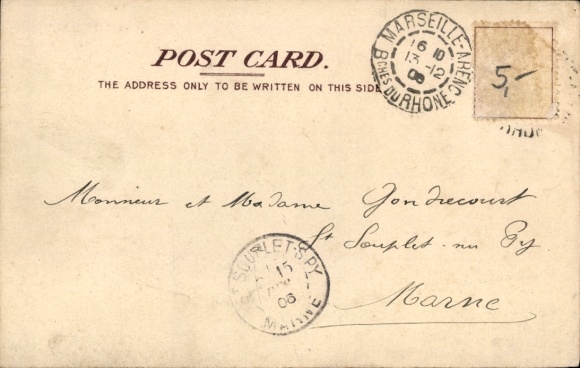 POST CARD.
THE ADDRESS ONLY TO BE WRITTEN ON THIS SIDE
MARSEILLE-ARENC
16 10
13 -12
06
BCHES DU RHONE
5,-
Monsieur et Madame Gondrecourt
St Souplet-su Py
Marne
ST SOUPLET-S-PY
15
06
MARNE